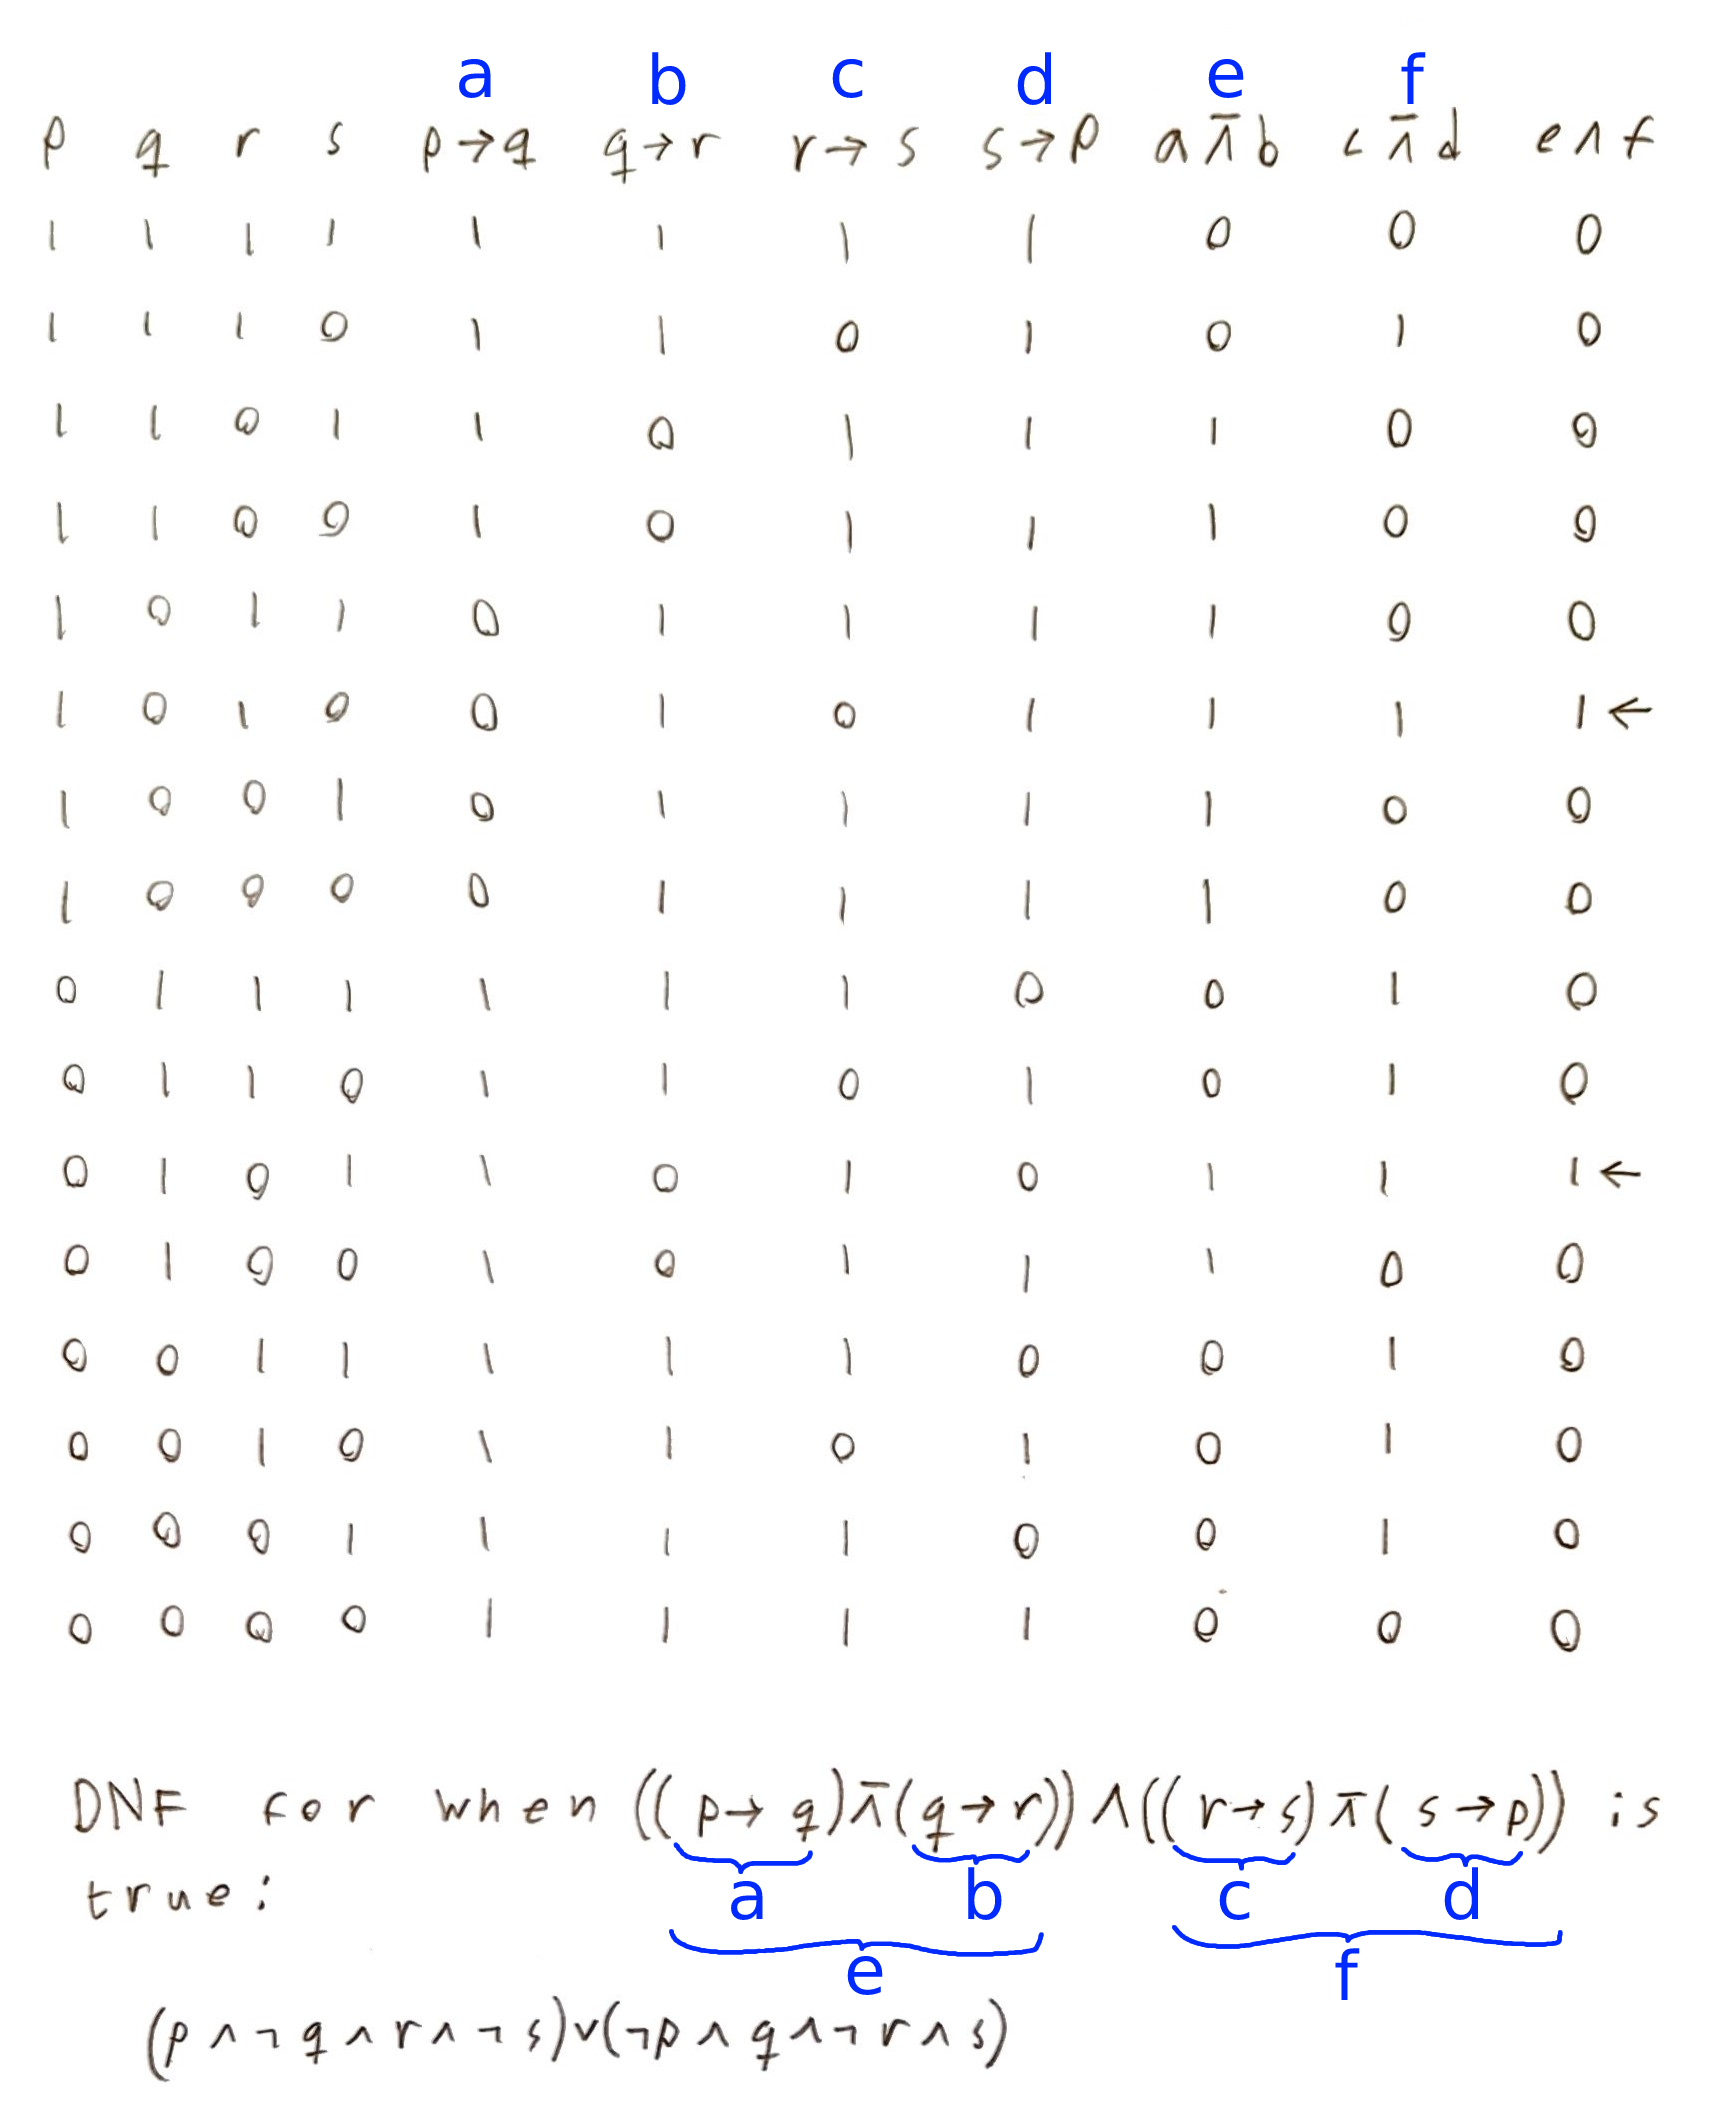 a b c d e f
p q r s p→q q→r r→s s→p a⊼b c⊼d e∧f
1 1 1 1 1 1 1 1 0 0 0
1 1 1 0 1 1 0 1 0 1 0
1 1 0 1 1 0 1 1 1 0 0
1 1 0 0 1 0 1 1 1 0 0
1 0 1 1 0 1 1 1 1 0 0
1 0 1 0 0 1 0 1 1 1 1 ←
1 0 0 1 0 1 1 1 1 0 0
1 0 0 0 0 1 1 1 1 0 0
0 1 1 1 1 1 1 0 0 1 0
0 1 1 0 1 1 0 1 0 1 0
0 1 0 1 1 0 1 0 1 1 1 ←
0 1 0 0 1 0 1 1 1 0 0
0 0 1 1 1 1 1 0 0 1 0
0 0 1 0 1 1 0 1 0 1 0
0 0 0 1 1 1 1 0 0 1 0
0 0 0 0 1 1 1 1 0 0 0
DNF for when ((p→q)⊼(q→r))∧((r→s)⊼(s→p)) is
true:
a b c d
e f
(p∧¬q∧r∧¬s)∨(¬p∧q∧¬r∧s)